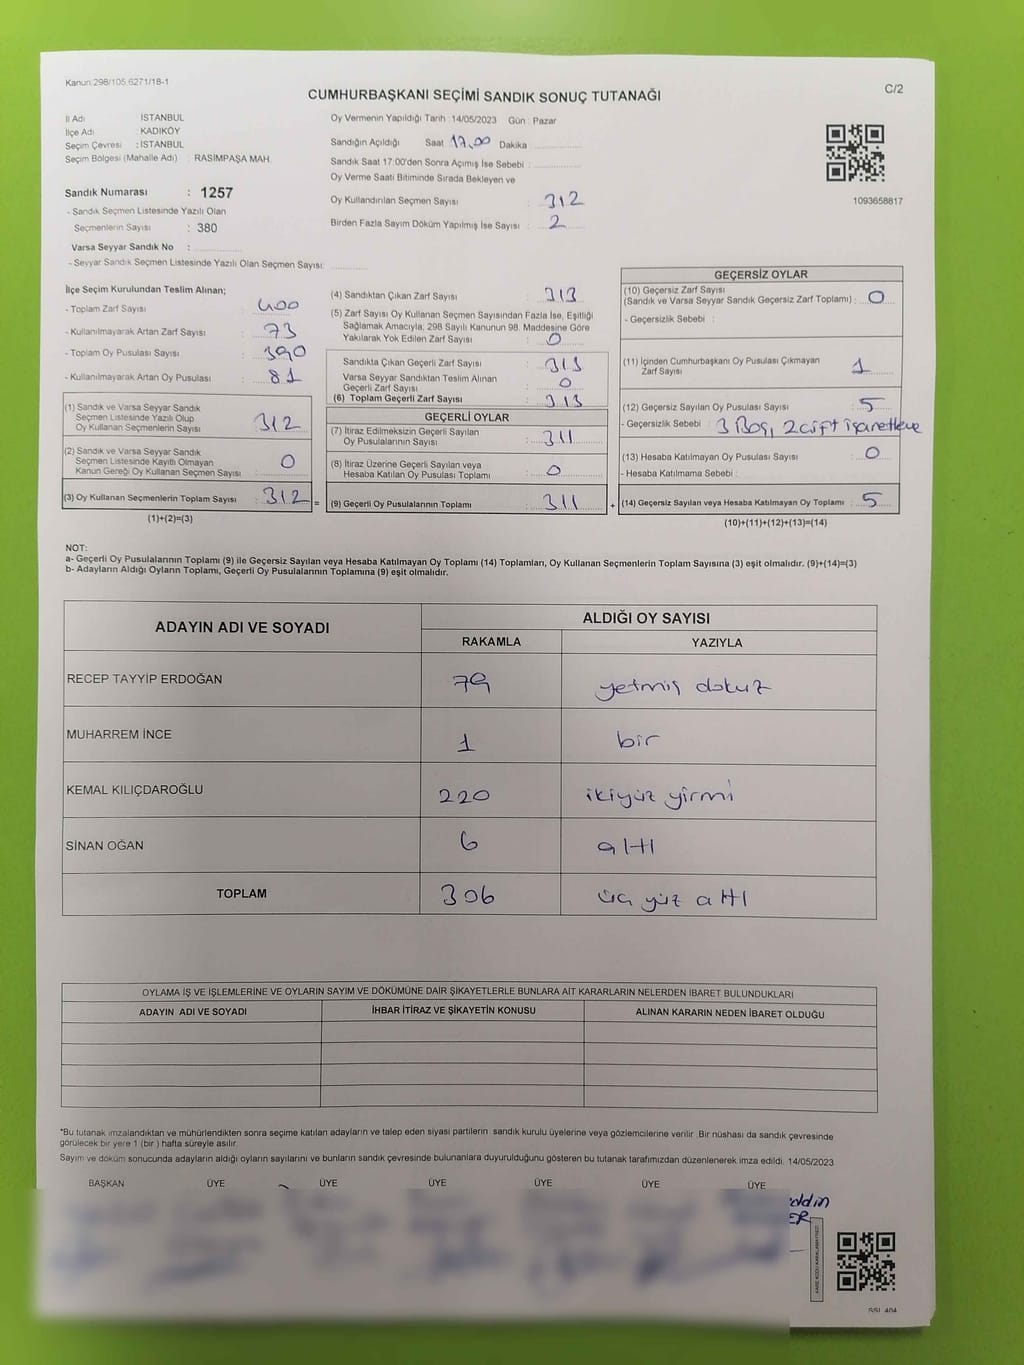 Kanun 298/105 6271/18-1
C/2
CUMHURBAŞKANI SEÇİMİ SANDIK SONUÇ TUTANAĞI
İl Adı : İSTANBUL
İlçe Adı : KADIKÖY
Seçim Çevresi : İSTANBUL
Seçim Bölgesi (Mahalle Adı) : RASİMPAŞA MAH.
Sandık Numarası : 1257
- Sandık Seçmen Listesinde Yazılı Olan
Seçmenlerin Sayısı : 380
Varsa Seyyar Sandık No :
- Seyyar Sandık Seçmen Listesinde Yazılı Olan Seçmen Sayısı:
Oy Vermenin Yapıldığı Tarih : 14/05/2023 Gün : Pazar
Sandığın Açıldığı Saat 17.00 Dakika
Sandık Saat 17:00'den Sonra Açımış İse Sebebi :
Oy Verme Saati Bitiminde Sırada Bekleyen ve
Oy Kullandırılan Seçmen Sayısı : 312
Birden Fazla Sayım Döküm Yapılmış İse Sayısı : 2
1093658817
İlçe Seçim Kurulundan Teslim Alınan;
- Toplam Zarf Sayısı : 400
- Kullanılmayarak Artan Zarf Sayısı : 73
- Toplam Oy Pusulası Sayısı : 390
- Kullanılmayarak Artan Oy Pusulası : 81
(1) Sandık ve Varsa Seyyar Sandık
Seçmen Listesinde Yazılı Olup
Oy Kullanan Seçmenlerin Sayısı : 312
(2) Sandık ve Varsa Seyyar Sandık
Seçmen Listesinde Kayıtlı Olmayan
Kanun Gereği Oy Kullanan Seçmen Sayısı : 0
(3) Oy Kullanan Seçmenlerin Toplam Sayısı : 312 =
(1)+(2)=(3)
(4) Sandıktan Çıkan Zarf Sayısı : 313
(5) Zarf Sayısı Oy Kullanan Seçmen Sayısından Fazla İse, Eşitliği
Sağlamak Amacıyla; 298 Sayılı Kanunun 98. Maddesine Göre
Yakılarak Yok Edilen Zarf Sayısı : 0
Sandıkta Çıkan Geçerli Zarf Sayısı : 313
Varsa Seyyar Sandıktan Teslim Alınan
Geçerli Zarf Sayısı : 0
(6) Toplam Geçerli Zarf Sayısı : 313
GEÇERLİ OYLAR
(7) İtiraz Edilmeksizin Geçerli Sayılan
Oy Pusulalarının Sayısı : 311
(8) İtiraz Üzerine Geçerli Sayılan veya
Hesaba Katılan Oy Pusulası Toplamı : 0
(9) Geçerli Oy Pusulalarının Toplamı : 311 +
GEÇERSİZ OYLAR
(10) Geçersiz Zarf Sayısı
(Sandık ve Varsa Seyyar Sandık Geçersiz Zarf Toplamı) : 0
- Geçersizlik Sebebi :
(11) İçinden Cumhurbaşkanı Oy Pusulası Çıkmayan
Zarf Sayısı : 1
(12) Geçersiz Sayılan Oy Pusulası Sayısı : 5
- Geçersizlik Sebebi : 3 Boş, 2 çift işaretleme
(13) Hesaba Katılmayan Oy Pusulası Sayısı : 0
- Hesaba Katılmama Sebebi :
(14) Geçersiz Sayılan veya Hesaba Katılmayan Oy Toplamı : 5
(10)+(11)+(12)+(13)=(14)
NOT:
a- Geçerli Oy Pusulalarının Toplamı (9) ile Geçersiz Sayılan veya Hesaba Katılmayan Oy Toplamı (14) Toplamları, Oy Kullanan Seçmenlerin Toplam Sayısına (3) eşit olmalıdır. (9)+(14)=(3)
b- Adayların Aldığı Oyların Toplamı, Geçerli Oy Pusulalarının Toplamına (9) eşit olmalıdır.
ADAYIN ADI VE SOYADI
ALDIĞI OY SAYISI
RAKAMLA YAZIYLA
RECEP TAYYİP ERDOĞAN 79 yetmiş dokuz
MUHARREM İNCE 1 bir
KEMAL KILIÇDAROĞLU 220 ikiyüz yirmi
SİNAN OĞAN 6 altı
TOPLAM 306 üçyüz altı
OYLAMA İŞ VE İŞLEMLERİNE VE OYLARIN SAYIM VE DÖKÜMÜNE DAİR ŞİKAYETLERLE BUNLARA AİT KARARLARIN NELERDEN İBARET BULUNDUKLARI
ADAYIN ADI VE SOYADI İHBAR İTİRAZ VE ŞİKAYETİN KONUSU ALINAN KARARIN NEDEN İBARET OLDUĞU
*Bu tutanak imzalandıktan ve mühürlendikten sonra seçime katılan adayların ve talep eden siyasi partilerin sandık kurulu üyelerine veya gözlemcilerine verilir. Bir nüshası da sandık çevresinde
görülecek bir yere 1 (bir ) hafta süreyle asılır.
Sayım ve döküm sonucunda adayların aldığı oyların sayılarını ve bunların sandık çevresinde bulunanlara duyurulduğunu gösteren bu tutanak tarafımızdan düzenlenerek imza edildi. 14/05/2023
BAŞKAN ÜYE ÜYE ÜYE ÜYE ÜYE ÜYE